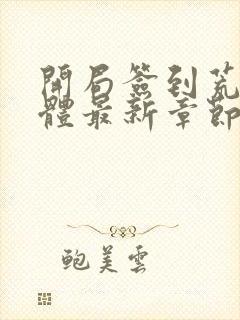 開局簽到荒
體最新章節
鮑美雲